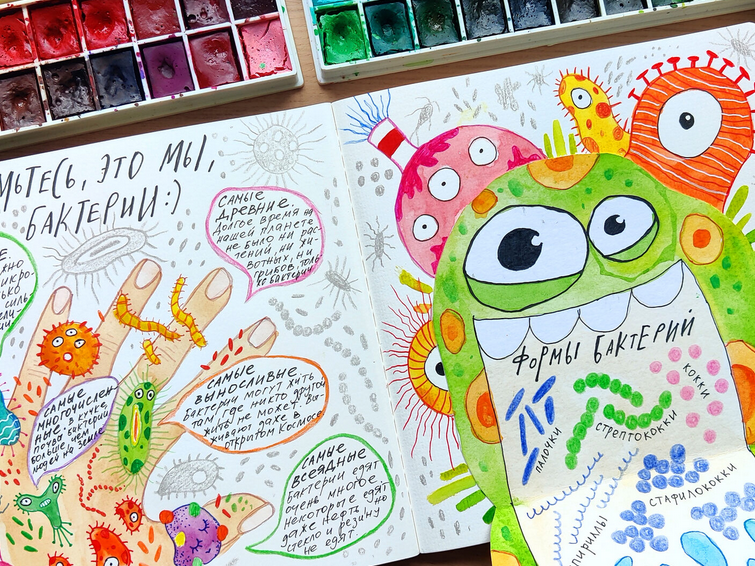 ЭТО МЫ,
БАКТЕРИИ:)
САМЫЕ
ДРЕВНИЕ.
Долгое время на
нашей планете
не было ни рас-
тений, ни жи-
вотных, ни
грибов, толь-
ко бактерии.
САМЫЕ
многочислен-
ные. в кучке
почвы бактерий
больше, чем
людей на Земле
САМЫЕ
выносливые.
Бактерии могут жить
там, где никто другой
жить не может. Вы-
живают даже в
открытом Космосе.
САМЫЕ
ВСЕЯДНЫЕ
Бактерии едят
очень многое.
Некоторые едят
даже нефть, но
стекло и резину
не едят.
ФОРМЫ БАКТЕРИЙ
ПАЛОЧКИ
СТРЕПТОКОККИ
КОККИ
СТАФИЛОКОККИ